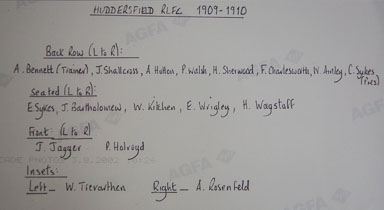 HUDDERSFIELD RLFC 1909-1910
Back Row (L to R):
A. Bennett (Trainer), J. Shallcross, A Hutton, P Walsh, H. Sherwood, F. Charlesworth, W. Antley, C. Sykes
(Pres)
Seated (L to R):
E Sykes, J. Bartholomew, W. Kitchen, E. Wrigley, H. Wagstaff
Front: (L to R)
J. Jagger P. Holroyd
Insets:
Left - W. Trevarthen Right - A. Rosenfeld